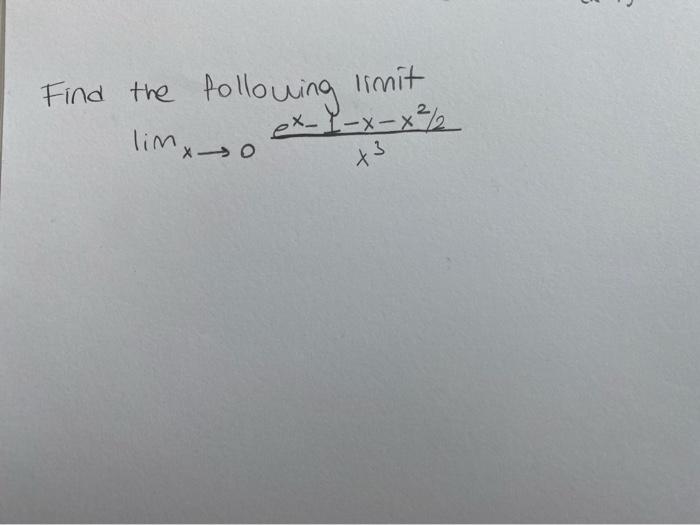 Find the following limit
lim x→0 e^x-1-x-x²/2
x³